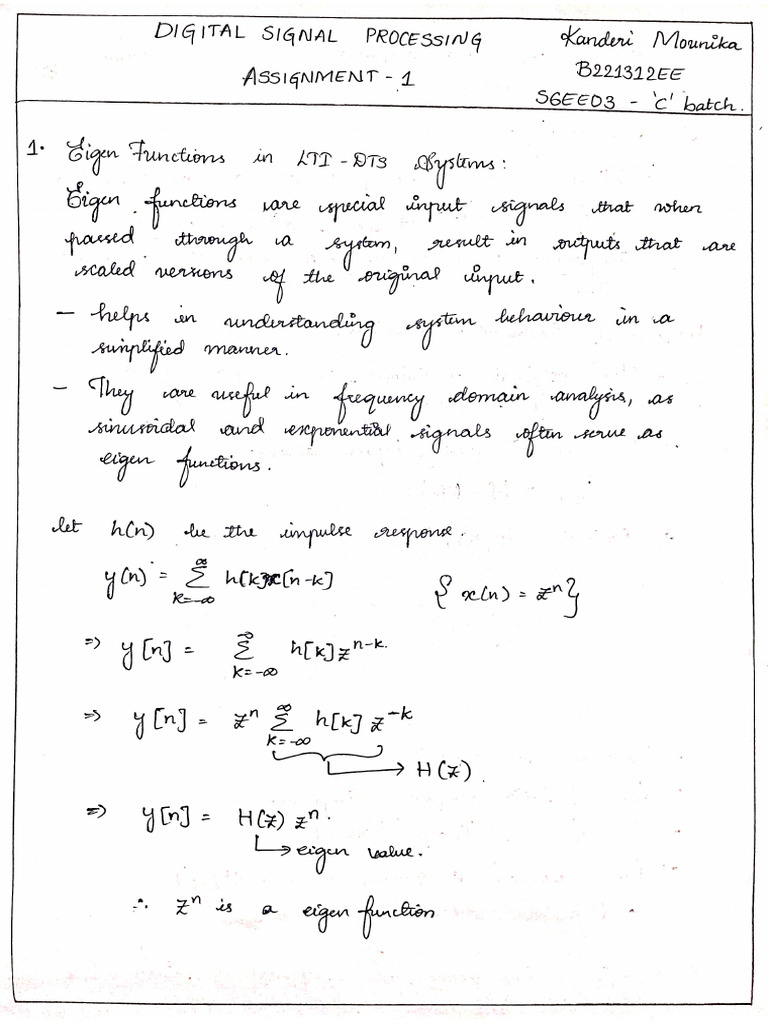 DIGITAL SIGNAL PROCESSING
ASSIGNMENT - 1
Kanderi Mounika
B221312EE
S6EE03 - 'C' batch.
1. Eigen Functions in LTI - DTS Systems:
Eigen functions are special input signals that when
passed through a system, result in outputs that are
scaled versions of the original input.
- helps in understanding system behaviour in a
simplified manner.
- They are useful in frequency domain analysis, as
sinusoidal and exponential signals often serve as
eigen functions.
let h(n) be the impulse response.
y(n) = ∞ Σ k=-∞ h[k]x[n-k] { x(n) = z^n }
⇒ y[n] = ∞ Σ k=-∞ h[k] z^n-k.
⇒ y[n] = z^n ∞ Σ k=-∞ h[k] z^-k
→ H(z).
⇒ y[n] = H(z) z^n.
→ eigen value.
∴ z^n is a eigen function